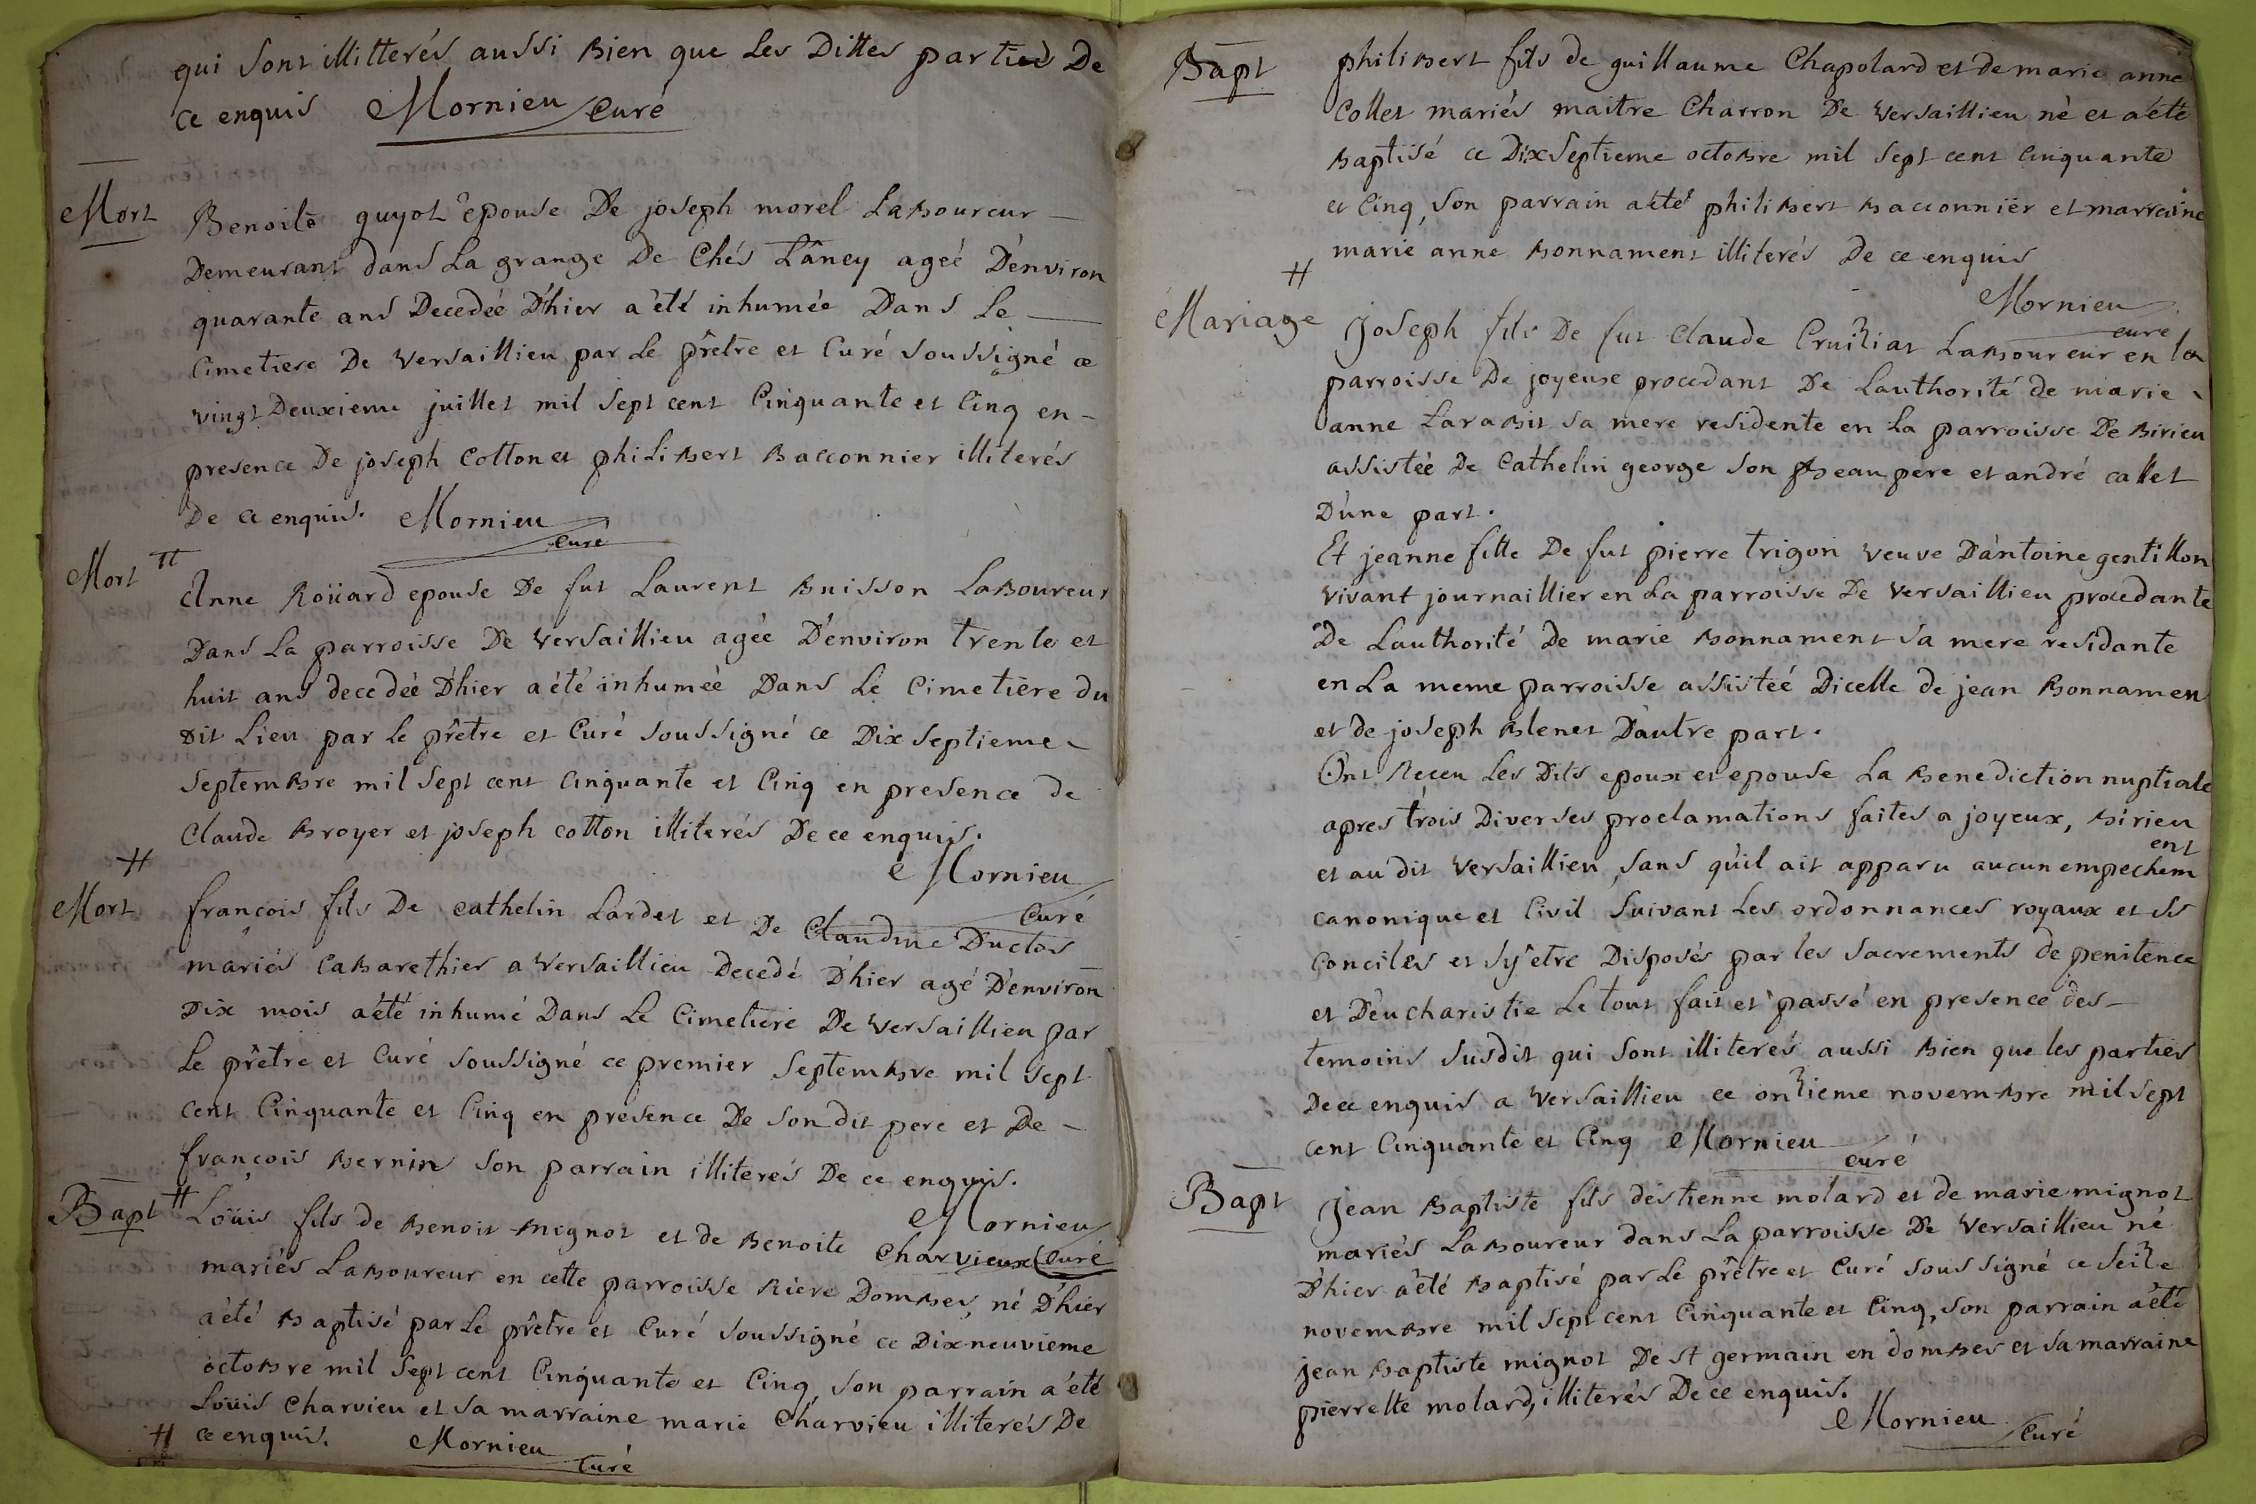 qui sont illitterés aussi bien que les dittes parties de
ce enquis Mornieu curé
Mort
Benoite guyot épouse de joseph morel laboureur
demeurant dans la grange de chés Lâney ageé d'environ
quarante ans decedeé d'hier a été inhumée dans le
cimetiere de versaillieu par le prêtre et curé soussigné ce
vingt deuxieme juillet mil sept cent cinquante et cinq en
presence de joseph cotton et philibert bacconnier illiterés
de ce enquis. Mornieu
curé
Mort
Anne Roüard epouse de fut Laurent buisson laboureur
dans la parroisse de versaillieu agée d'environ trente et
huit ans decedeé d'hier a été inhumeé dans le cimetière du
dit lieu par le prêtre et curé soussigné ce dix septieme
septembre mil sept cent cinquante et cinq en presence de
Claude broyer et joseph cotton illiterés de ce enquis.
Mornieu
curé
Mort
françois fils de cathelin Lardet et de Claudine Duclos
mariés cabarethier a versaillieu decedé d'hier agé d'environ
dix mois a été inhumé dans le cimetiere de versaillieu par
le prêtre et curé soussigné ce premier septembre mil sept
cent cinquante et cinq en presence de son dit pere et de
françois bernin son parrain illiterés de ce enquis.
Mornieu
curé
Bapt
Loüis fils de benoit mignot et de benoite Charvieux
mariés laboureur en cette parroisse riere dombes, né d'hier
a été baptisé par le prêtre et curé soussigné ce dix neuvieme
octobre mil sept cent cinquante et cinq, son parrain a été
Loüis Charvieu et sa marraine marie Charvieu illiterés de
ce enquis. Mornieu
curé
Bapt
philibert fils de guillaume Chapolard et de marie anne
Collet mariés maitre Charron de versaillieu né et a été
baptisé ce dix septieme octobre mil sept cent cinquante
et cinq, son parrain a été philibert bacconniér et marraine
marie anne bonnament illiterés de ce enquis
Mornieu
curé
Mariage
Joseph fils de fut claude Cruiziat laboureur en la
parroisse de joyeux procedant de l'authorité de marie
anne Larabit sa mere residente en la parroisse de birieu
assistée de cathelin george son beau pere et andré callet
d'une part.
Et jeanne fille de fut pierre trigon veuve d'antoine gentillon
vivant journaillier en la parroisse de versaillieu procedante
de l'authorité de marie bonnament sa mere residante
en la meme parroisse assisteé dicelle de jean bonnamen
et de joseph blenet d'autre part.
Ont receu les dits epoux et epouse la benediction nuptiale
apres trois diverses proclamations faites a joyeux, birieu
et au dit versaillieu, sans qu'il ait apparu aucun empechement
canonique et civil suivant les ordonnances royaux et SS
conciles et s'y être disposés par les sacrements de penitence
et d'eucharistie le tout fait et passé en presence des
temoins susdit qui sont illiterés aussi bien que les parties
de ce enquis a versaillieu ce onzieme novembre mil sept
cent cinquante et cinq Mornieu
curé
Bapt
Jean baptiste fils d'estienne molard et de marie mignot
mariés laboureur dans la parroisse de versaillieu né
d'hier a été baptisé par le prêtre et curé soussigné ce seize
novembre mil sept cent cinquante et cinq, son parrain a été
jean baptiste mignot de st germain en dombes et sa marraine
pierrette molard, illiterés de ce enquis.
Mornieu
curé